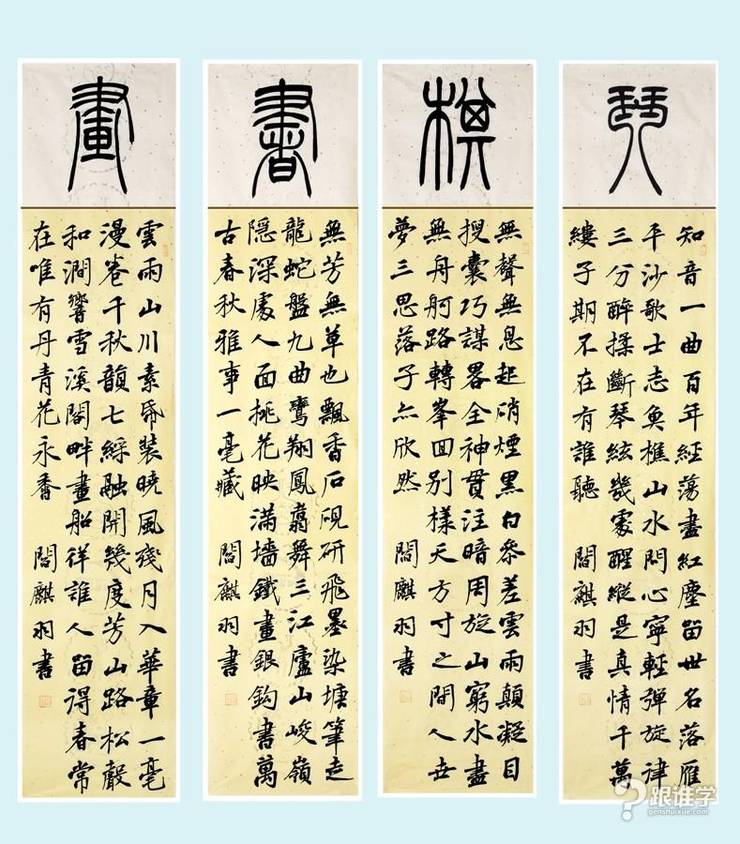 琴
知音一曲百年經蕩盡紅塵留世名落雁
平沙歌士志魚樵山水問心寧輕彈旋律
三分醉揉斷琴絃幾處醒縱是真情千萬
縷子期不在有誰聽 閻麒羽書
棋
無聲無息起硝煙黑白參差雲雨顛凝目
搜囊巧謀畧全神貫注暗周旋山窮水盡
無舟舸路轉峯回別樣天方寸之間人世
夢三思落子亦欣然 閻麒羽書
書
無芳無草也飄香石硯研飛墨染塘筆走
龍蛇盤九曲鸞翔鳳翥舞三江廬山峻嶺
隱深處人面桃花映滿墻鐵畫銀鉤書萬
古春秋雅事一毫藏 閻麒羽書
畫
雲雨山川素帋裝曉風殘月入華章一毫
漫卷千秋韻七綵融開幾度芳山路松聲
和澗響雪溪閣畔畫船徉誰人留得春常
在唯有丹青花永香 閻麒羽書
跟谁学
genshuixue.com